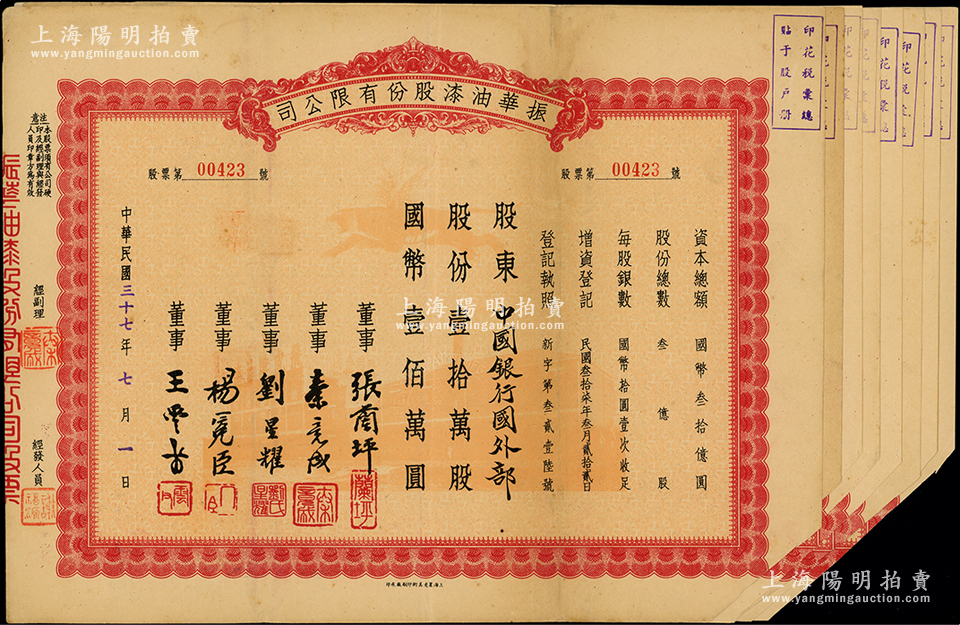 上海陽明拍賣
www.yangmingauction.com
印花税彙總
貼于股戶册
振華油漆股份有限公司
股票第 00423 號
股票第 00423 號
資本總額 國幣叁拾億圓
股份總數 叁億股
每股銀數 國幣拾圓壹次收足
增資登記 民國叁拾柒年叁月貳拾貳日
登記執照 新字第叁貳壹陸號
股東 中國銀行國外部
股份壹拾萬股
國幣壹佰萬圓
董事 張蘭坪
董事 秦
董事 劉星耀
董事 楊寬臣
董事 王雲甫
中華民國三十七年七月一日
注意 本股票須有公司硬
印及經副理與經發
人員印章方為有效
經副理
經發人員
上海陽明拍賣
www.yangmingauction.com
上海陽明拍賣
www.yangmingauction.com